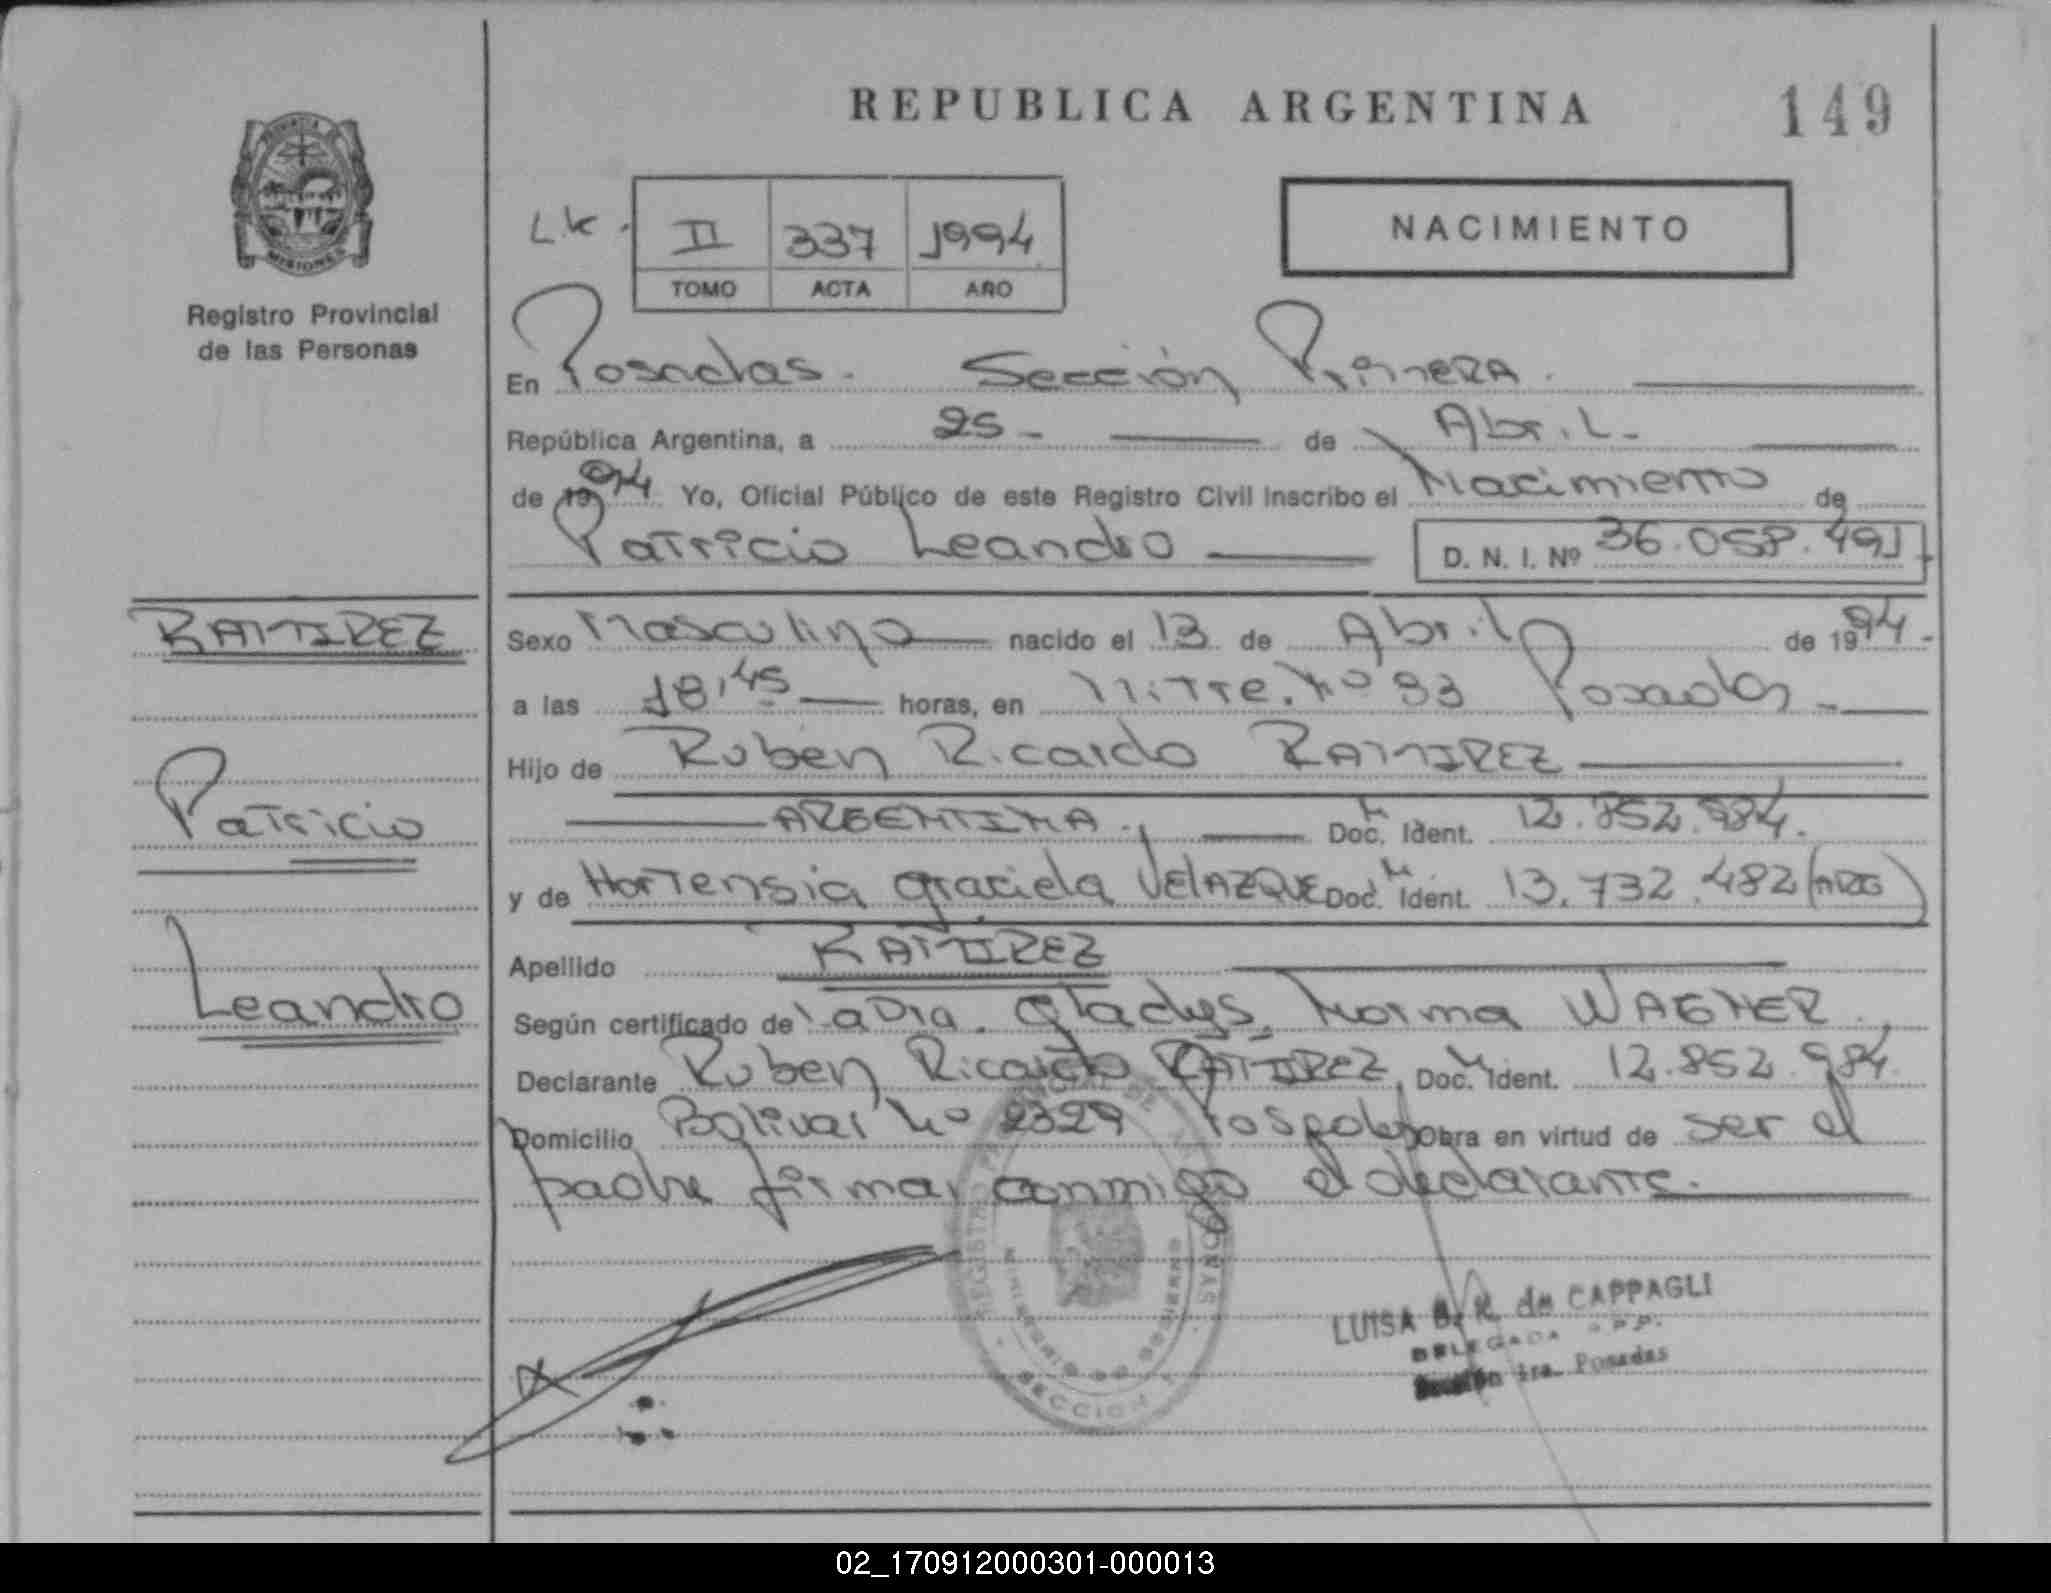 REPUBLICA ARGENTINA
149
PROVINCIA DE
MISIONES
Registro Provincial
de las Personas
L.K.
II 337 1994
TOMO ACTA AÑO
NACIMIENTO
En Posadas. Sección Primera.
República Argentina, a 25 - de Abril.-
de 1994 Yo, Oficial Público de este Registro Civil inscribo el Nacimiento de
Patricio Leandro D. N. I. Nº 36.058.491
RAMIREZ
Sexo Masculino nacido el 13 de Abril de 1994.-
a las 18,45 horas, en Mitre. Nº 93 Posadas -
Hijo de Ruben Ricardo RAMIREZ
Patricio
ARGENTINA., Doc. Ident. 12.852.984.
y de Hortensia Graciela VELAZQUE Doc. Ident. 13.732.482 (ARG)
Leandro
Apellido RAMIREZ
Según certificado de la Dra. Gladys Norma WAGNER.,
Declarante Ruben Ricardo RAMIREZ, Doc. Ident. 12.852.984
Domicilio Bolivar Nº 2329 Posadas Obra en virtud de ser el
padre firmar conmigo el declarante.
SECCION
LUISA B. K. de CAPPAGLI
DELEGADA
Sección 1ra. Posadas
02_170912000301-000013